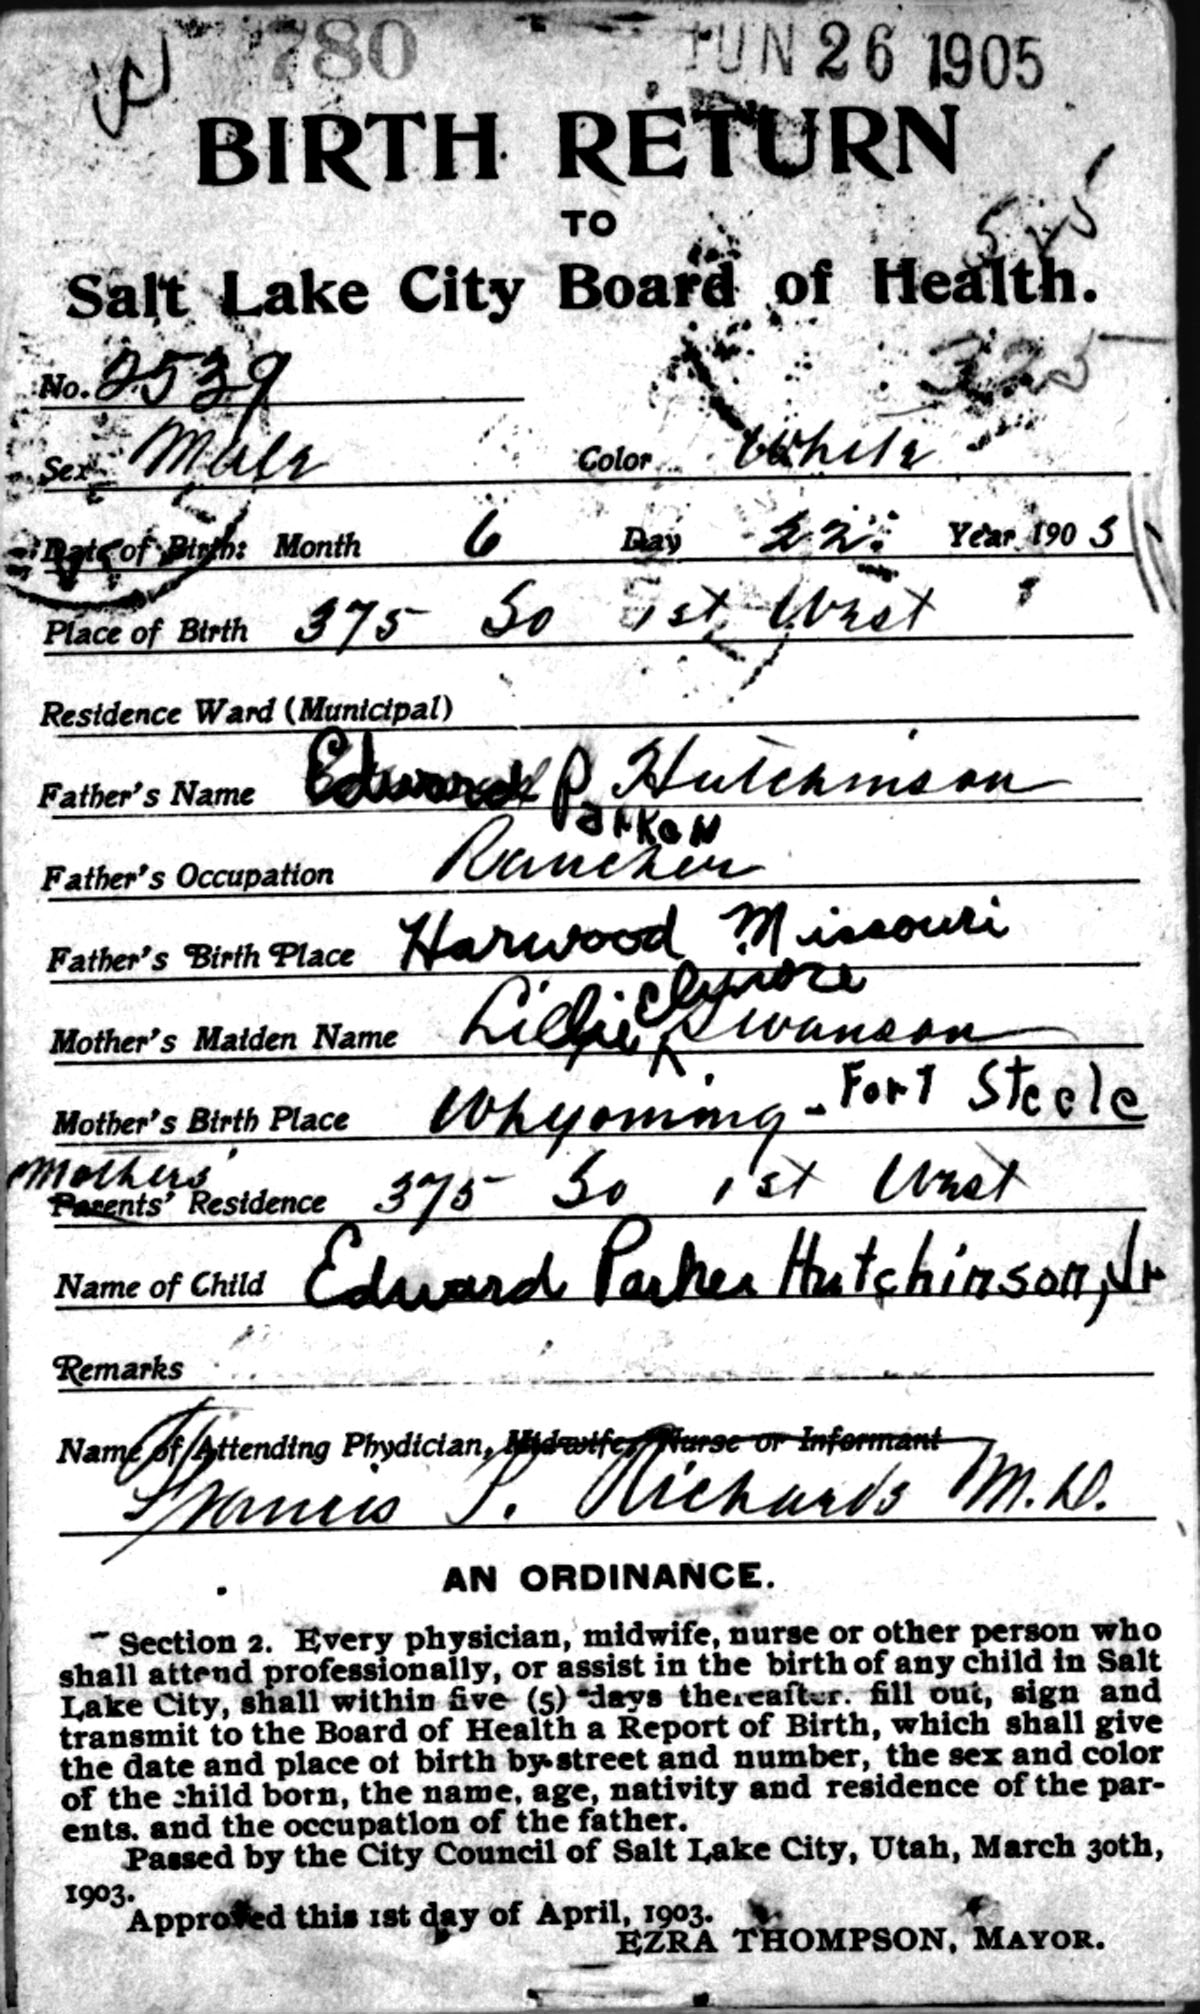 780 JUN 26 1905
BIRTH RETURN
TO
525
Salt Lake City Board of Health.
325
No. 2539
Sex Male Color White
Date of Birth: Month 6 Day 22 Year 1905
Place of Birth 375 So 1st West
Residence Ward (Municipal)
Father's Name Edward P Hutchinson
Parker
Father's Occupation Rancher
Father's Birth Place Harwood Missouri
Elmore
Mother's Maiden Name Lillie Swanson
Mother's Birth Place Whyoming - Fort Steele
Mothers'
Parents' Residence 375 So 1st West
Name of Child Edward Parker Hutchinson, Jr
Remarks
Name of Attending Phydician, Midwife, Nurse or Informant
Francis S. Richards M.D.
AN ORDINANCE.
Section 2. Every physician, midwife, nurse or other person who
shall attend professionally, or assist in the birth of any child in Salt
Lake City, shall within five (5) days thereafter. fill out, sign and
transmit to the Board of Health a Report of Birth, which shall give
the date and place of birth by street and number, the sex and color
of the child born, the name, age, nativity and residence of the par-
ents. and the occupation of the father.
Passed by the City Council of Salt Lake City, Utah, March 30th,
1903.
Approved this 1st day of April, 1903.
EZRA THOMPSON, MAYOR.